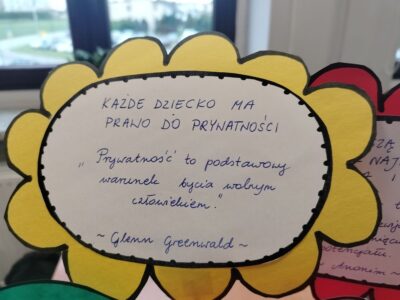 KAŻDE DZIECKO MA
PRAWO DO PRYWATNOŚCI
„Prywatność to podstawowy
warunek bycia wolnym
człowiekiem."
~ Glenn Greenwald ~
~ Anonim ~